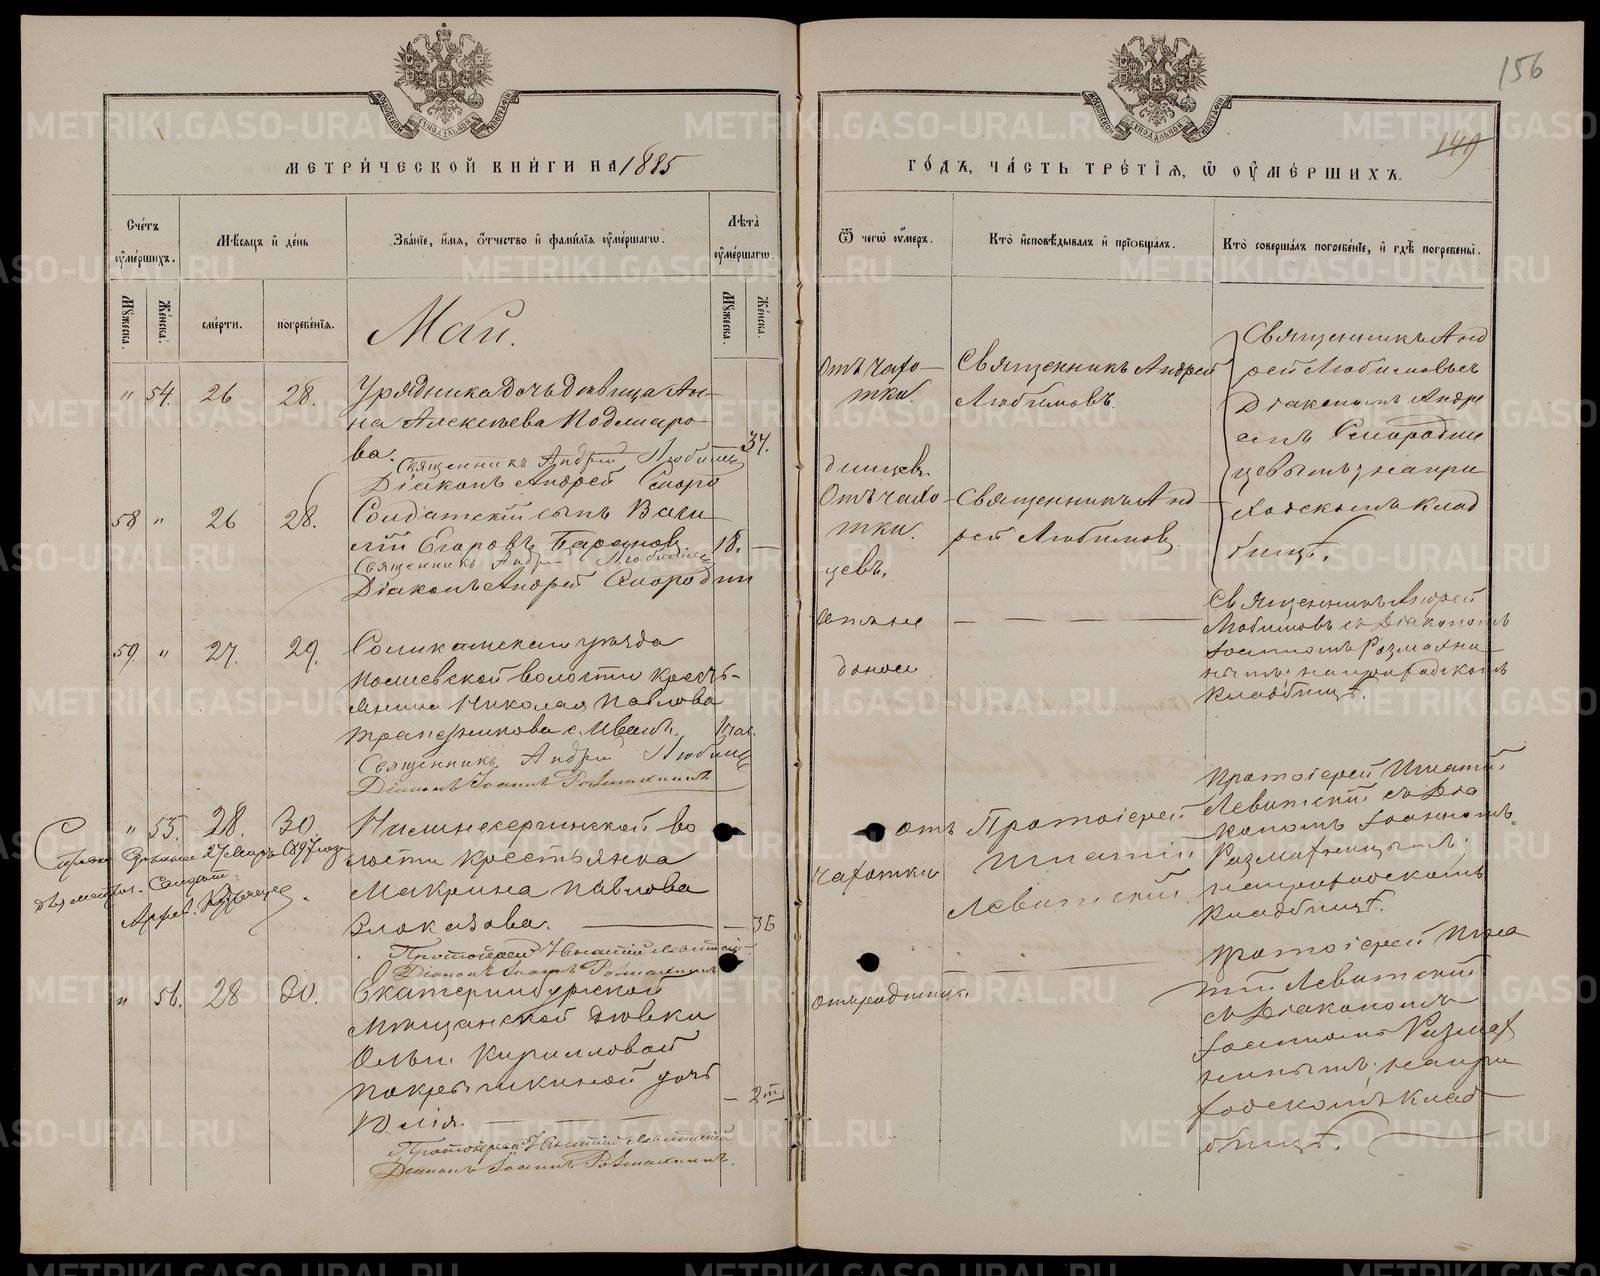 156
149
МЕТРИ́ЧЕСКОЙ КНИ́ГИ НА 1885
ГО́ДЪ, ЧА́СТЬ ТРЕ́ТІЯ, Ѿ ОУ҆МЕ́РШИХЪ.
Сче́тъ оу҆ме́ршихъ.
Мѣ́сяцъ и҆ де́нь
Зва́ніе, и҆́мя, о҆́тчество и҆ фами́лія оу҆ме́ршагѡ.
Лѣта̀ оу҆ме́ршагѡ.
Ѿ чегѡ̀ оу҆́меръ.
Кто̀ и҆сповѣ́дывалъ и҆ прїобща́лъ.
Кто̀ соверша́лъ погребе́ніе, и҆ гдѣ̀ погребены̀.
Мꙋ́жеска.
Же́нска.
сме́рти.
погребе́нія.
Мꙋ́жеска.
Же́нска.
Май.
" 54. 26 28.
Урядника дочь девица Ан-
на Алексѣева Подмаро
ва. 34.
Священникъ Андрей Любимов
Діаконъ Андрей Сморо
динцевъ.
Отъ чахо-
тки.
Священникъ Андрей
Любимовъ.
Священникъ Анд
рей Любимовъ съ
Діакономъ Андре
емъ Смородин
цевымъ, на при
ходскомъ клад
бищѣ.
58 " 26 28.
Солдатскій сынъ Васи
лій Егоровъ Баранов. 18. —
Священникъ Андрей Любимов
Діаконъ Андрей Смородин
цевъ.
Отъ чахо
тки.
Священникъ Анд
рей Любимов
59. " 27. 29.
Соликамскаго уѣзда
волости кресть-
янина Николая Павлова
Трапезникова с. Иванъ.
Священникъ Андрей Любимов
Діаконъ Іоаннъ Размахнинъ
доноси
Священникъ Андрей
Любимовъ съ Діакономъ
Іоанномъ Размахни
нымъ, на приходскомъ
кладбищѣ.
" 55. 28. 30.
Нижнесергинской во
лости крестьянка
Макрина Павлова
Злоказова. — 36
Протоіерей Игнатій Левитскій
Діаконъ Іоаннъ Размахнинъ
отъ
чахотки
Протоіерей
Игнатій
Левитскій.
Протоіерей Игнатій
Левитскій съ Діа
кономъ Іоанномъ
Размахнинымъ.
на приходскомъ
кладбищѣ.
27 Мар. 1897 года
" 56. 28 30.
Екатеринбургской
мѣщанской дѣвки
Ольги Кирилловой
Покрышкиной дочь
Юлія. — 2
Протоіерей Игнатій Левитскій
Діаконъ Іоаннъ Размахнинъ.
отъ родимца.
Протоіерей Игна
тій Левитскій
съ Діакономъ
Іоанномъ Размах
нинымъ, на при
ходскомъ клад
бищѣ.
METRIKI.GASO-URAL.RU